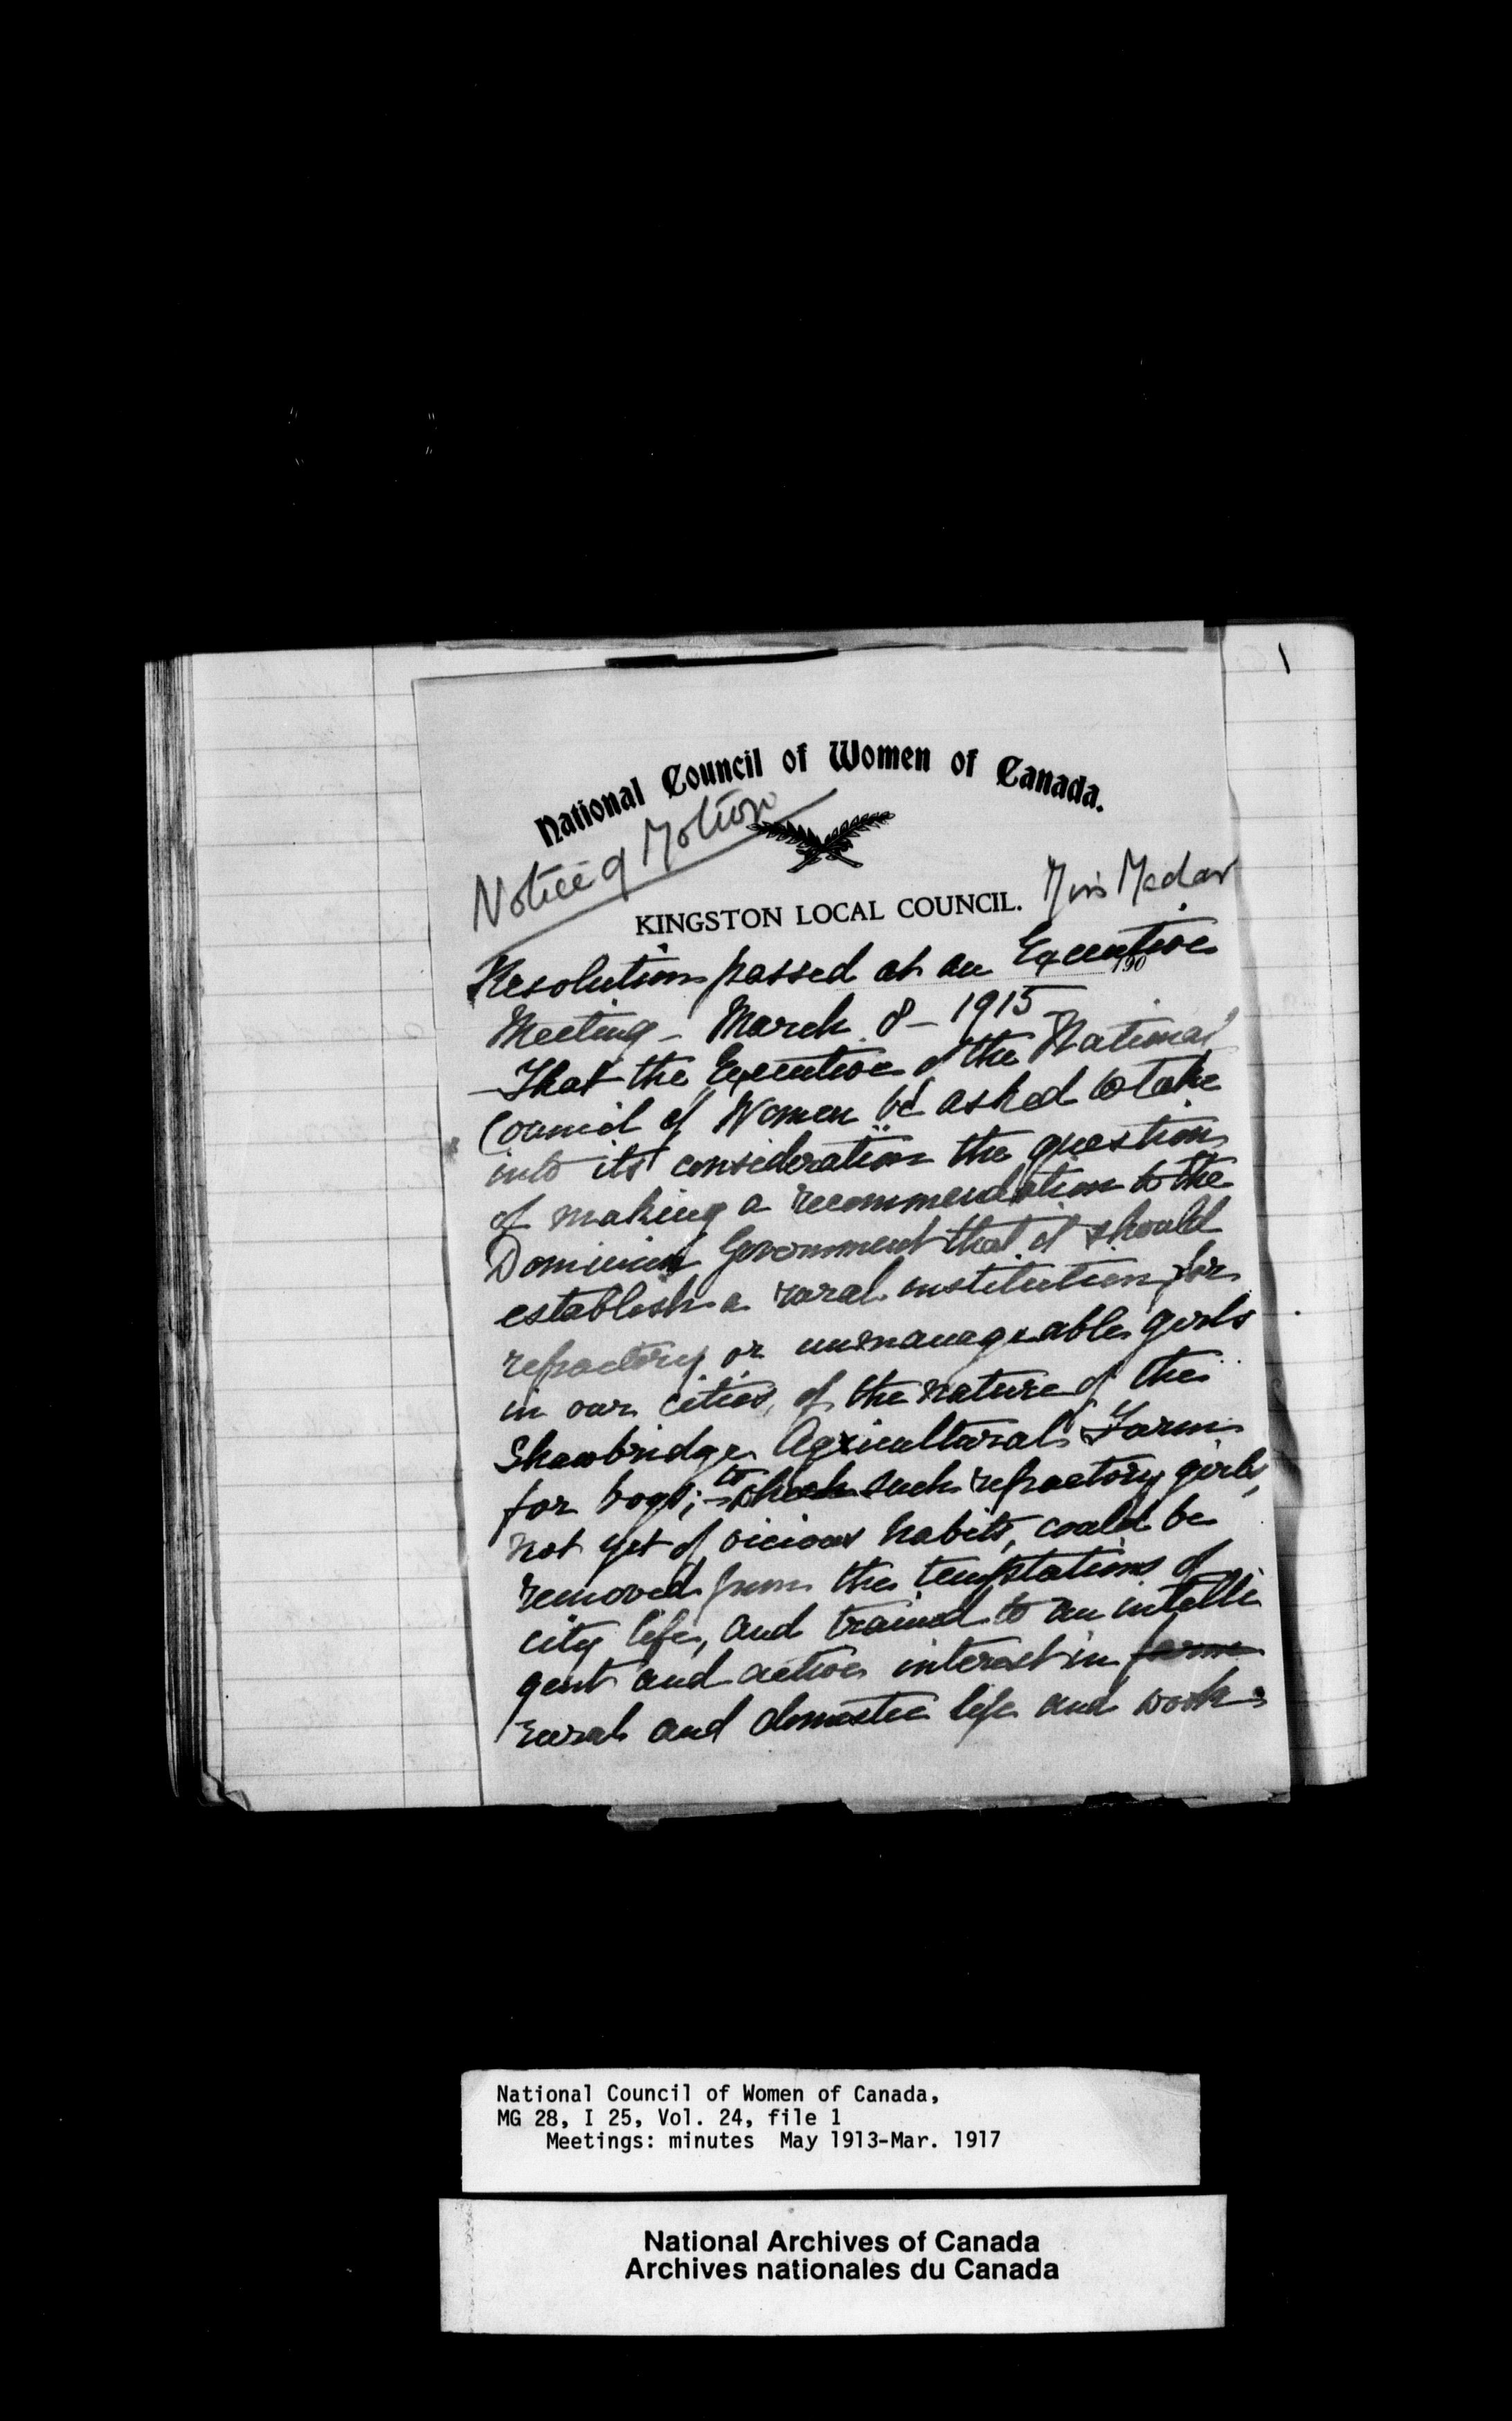 1
National Council of Women of Canada.
Notice of Motion
KINGSTON LOCAL COUNCIL.
Resolution passed at an Executive
190
Meeting - March 8 - 1915 -
That the Executive of the National
Council of Women be asked to take
into its consideration the question
of making a recommendation to the
Dominion Government that it should
establish a rural institution for
refractory or unmanageable girls
in our cities, of the nature of the
Shawbridge Agricultural Farm
for boys; to such refractory girls,
not yet of vicious habits, could be
removed from the temptations of
city life, and trained to an intelli
gent and active interest in farm
rural and domestic life and work.
National Council of Women of Canada,
MG 28, I 25, Vol. 24, file 1
Meetings: minutes May 1913-Mar. 1917
National Archives of Canada
Archives nationales du Canada